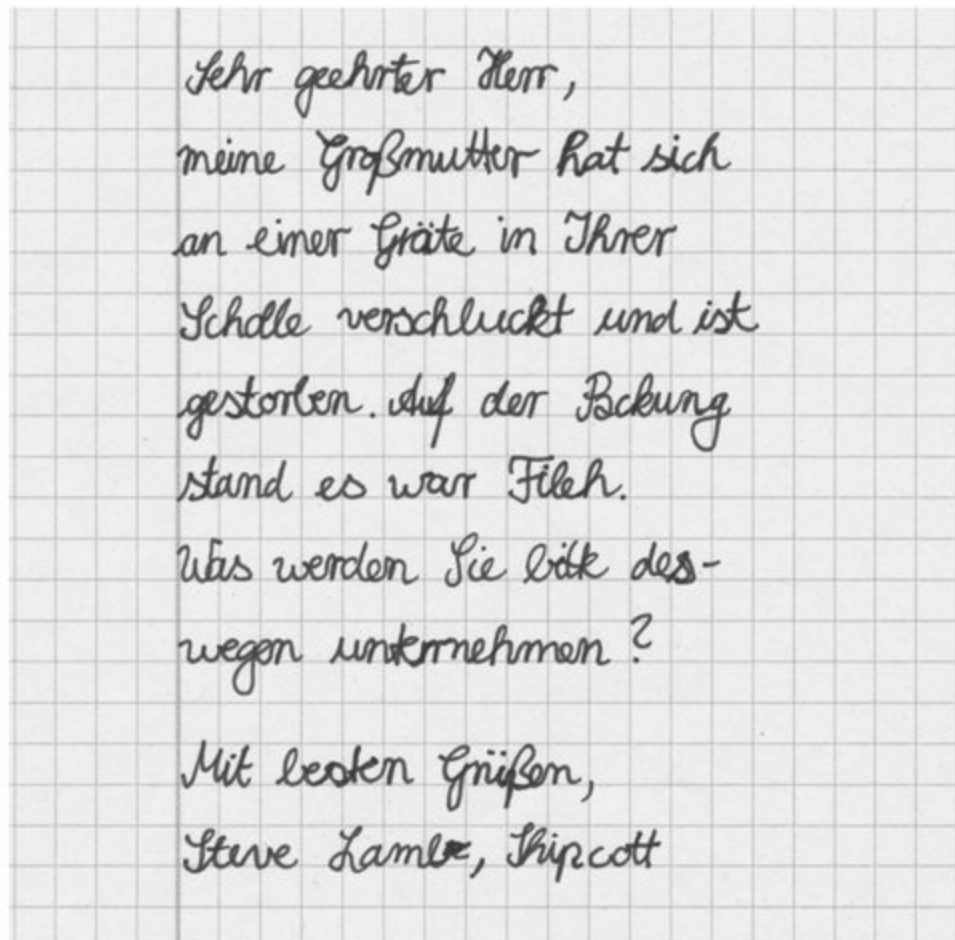 Sehr geehrter Herr,
meine Großmutter hat sich
an einer Gräte in Ihrer
Scholle verschluckt und ist
gestorben. Auf der Packung
stand es war Fileh.
Was werden Sie bitte des-
wegen unternehmen?
Mit besten Grüßen,
Steve Lambe, Shipcott